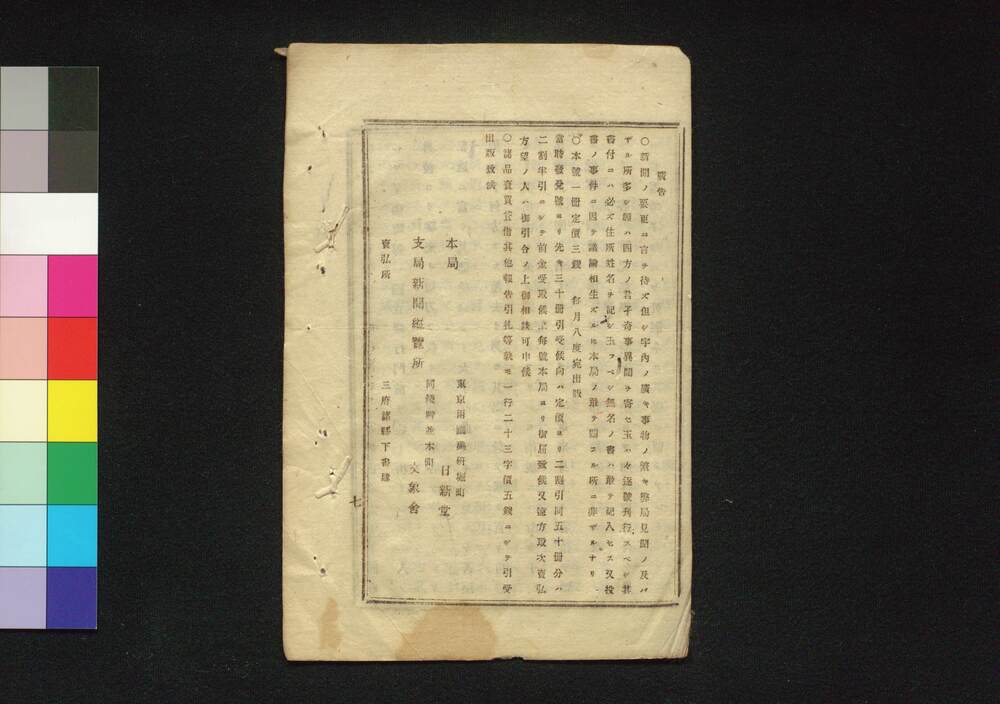 廣告
〇新聞ノ要更ニ言ヲ待ズ但シ宇内ノ廣キ事物ノ繁キ弊局見聞ノ及バ
ザル所多シ願ハ四方ノ君子奇事異聞ヲ寄セ玉ハヾ逐號刊行スベシ其
書付ニハ必ズ住所姓名ヲ記シ玉フベシ無名ノ書ハ敢テ記入セズ又投
書ノ事件ニ因テ議論相生ズルモ本局ノ敢テ關スル所ニ非ザルナリ
〇本號一冊定價三錢 每月八度宛出版
當時發兌號ヨリ先キ三十冊引受候向ハ定價ヨリ二割引同五十冊分ハ
二割半引ニシテ前金受取候上每號本局ヨリ御届致候又遠方取次賣弘
方望ノ人ハ御引合ノ上御相談可申候
〇諸品賣買貸借其他報告引札等張モ一行二十三字價五錢ニシテ引受
出版致候
本局 東京兩國橋研堀町 日新堂
支局新聞縱覽所 同淺草並木町 文象舍
賣弘所 三府諸縣下書肆
七